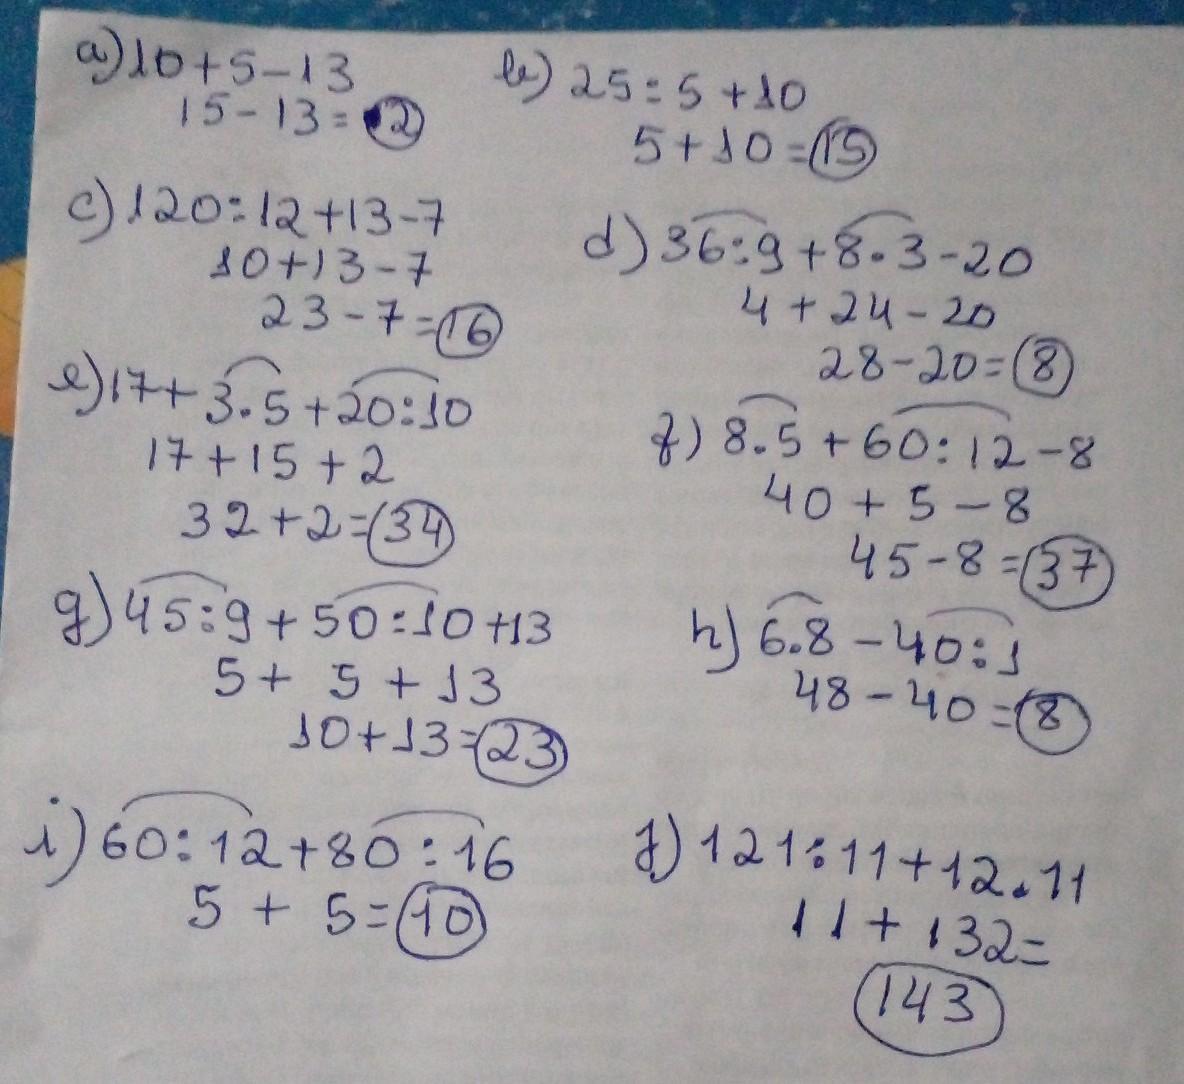 a) 10+5-13
15-13=2
b) 25:5+10
5+10=15
c) 120:12+13-7
10+13-7
23-7=16
d) 36:9+8.3-20
4+24-20
28-20=8
e) 17+3.5+20:10
17+15+2
32+2=34
f) 8.5+60:12-8
40+5-8
45-8=37
g) 45:9+50:10+13
5+5+13
10+13=23
h) 6.8-40:1
48-40=8
i) 60:12+80:16
5+5=10
j) 121:11+12.11
11+132=
143